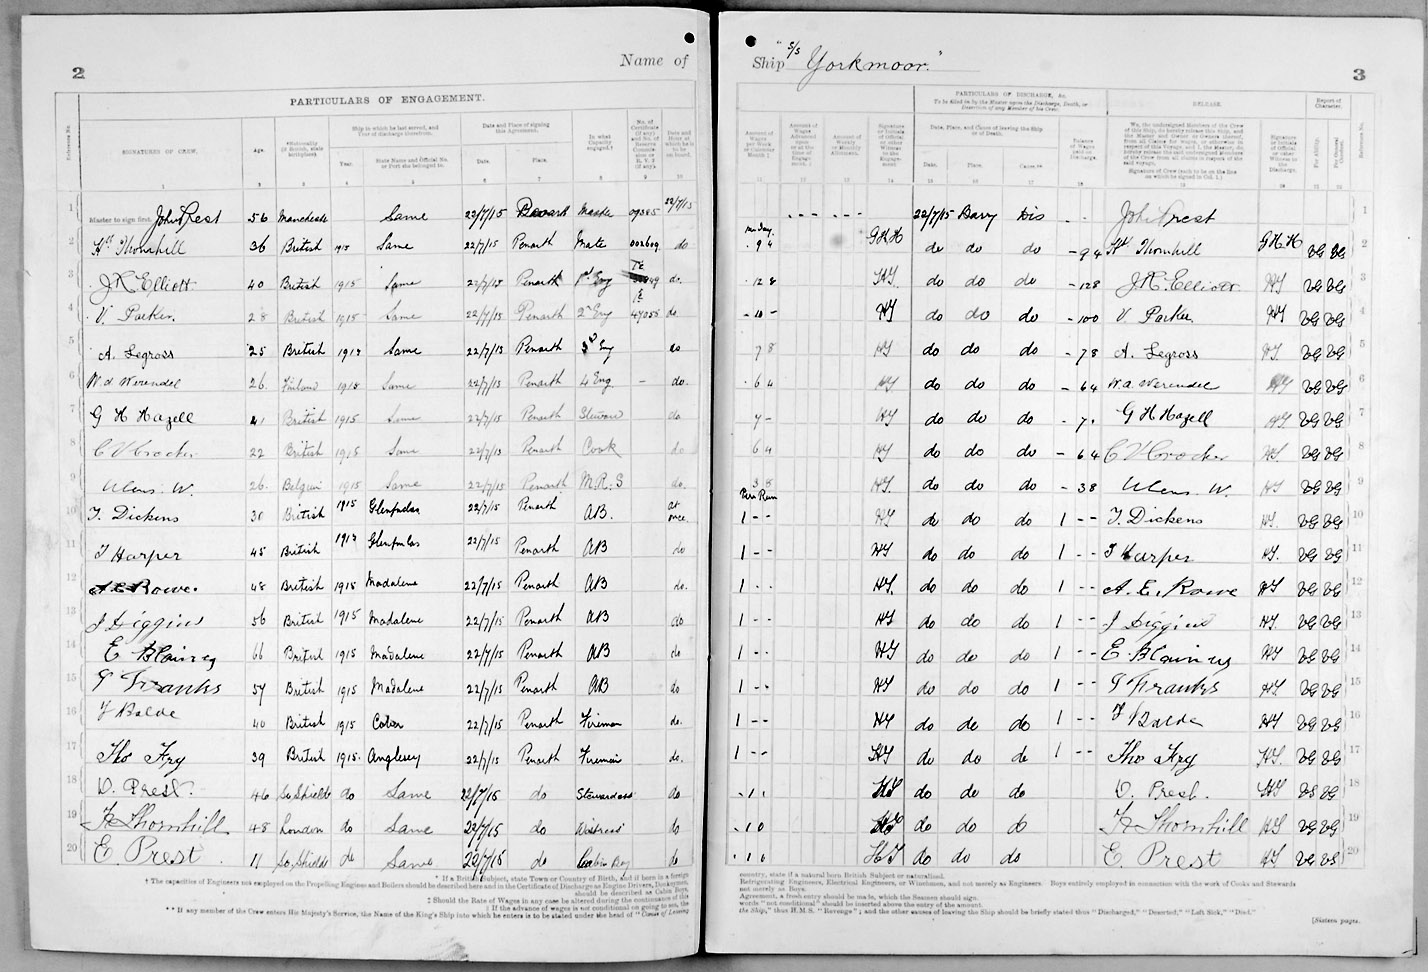 2
Name of
PARTICULARS OF ENGAGEMENT.
Reference No.
SIGNATURES OF CREW.
Age.
*Nationality (if British, state birthplace).
Ship in which he last served, and Year of discharge therefrom.
Year.
State Name and Official No. or Port she belonged to.
Date and Place of signing this Agreement.
Date.
Place.
In what Capacity engaged.†
Date and Hour at which he is to be on board.
1 2 3 4 5 6 7 8 9 10
1 Master to sign first. John Prest 56 Manchester Same 22/7/15 Master 22/7/15
2 Thornhill 36 British Same 22/7/15 Penarth Mate 002609 do
3 J. Elliott 40 British 1915 Same 22/7/15 Penarth 1st Eng do.
4 V. Parker. 28 British 1915 Same 22/7/15 Penarth 2nd Eng 47055 do
5 A. Legross 25 British 1915 Same 22/7/15 Penarth 3rd Eng do
6 26. Finland 1915 Same 22/7/15 Penarth 4 Eng. - do.
7 G H Hazell 41 British 1915 Same 22/7/15 Penarth Steward do
8 C V Crocker 22 British 1915 Same 22/7/15 Penarth Cook do
9 W. 26. Belgium 1915 Same 22/7/15 Penarth M.R.S do.
10 T. Dickens 30 British 1915 22/7/15 Penarth AB. at once.
11 T Harper 45 British 1915 22/7/15 Penarth AB do
12 A E Rowe. 48 British 1915 Madalene 22/7/15 Penarth AB do.
13 J Diggins 56 British 1915 Madalene 22/7/15 Penarth AB do
14 E Blainey 66 British 1915 Madalene 22/7/15 Penarth AB do
15 Franks 57 British 1915 Madalene 22/7/15 Penarth AB do
16 Balde 40 British 1915 22/7/15 Penarth Fireman do.
17 Tho Fry 39 British 1915. Anglesey 22/7/15 Penarth Fireman do.
18 Prest. 46 So. Shields do Same 22/7/15 do Stewardess do
19 Thornhill 48 London do Same 22/7/15 do do
20 E. Prest. 11 So, Shields do Same 22/7/15 do Cabin Boy do
* If a British Subject, state Town or Country of Birth, and if born in a foreign
† The capacities of Engineers not employed on the Propelling Engines and Boilers should be described here and in the Certificate of Discharge as Engine Drivers, Donkeymen,
should be described as Cabin Boys,
‡ Should the Rate of Wages in any case be altered during the continuance of this
|| If the advance of wages is not conditional on going to sea, the
** If any member of the Crew enters His Majesty's Service, the Name of the King's Ship into which he enters is to be stated under the head of "Causes of Leaving
Ship "s/s Yorkmoor."
3
PARTICULARS OF DISCHARGE, &c.
To be filled in by the Master upon the Discharge, Death, or Desertion of any Member of his Crew.
RELEASE.
Report of Character.
Amount of Wages per Week or Calendar Month.‡
Amount of Wages Advanced upon or at the time of Engagement.||
Amount of Weekly or Monthly Allotment.
Signature or Initials of Official or other Witness to the Engagement
Date, Place, and Cause of leaving the Ship or of Death.
Date.
Place.
Cause.**
Balance of Wages paid on Discharge.
Signature of Crew (each to be on the line on which he signed in Col. 1.)
Signature or Initials of Official or other Witness to the Discharge.
For Ability.
For General Conduct.
Reference No.
11 12 13 14 15 16 17 18 19 20 21 22
- - - - - - 22/7/15 Barry Dis - - John Prest 1
9 4 GHH do do do - 9 4 Thornhill GHH VG VG 2
12 8 HJ. do do do - 12 8 J. Elliott HJ VG VG 3
- 10 - HJ do do do - 10 0 V. Parker HJ VG VG 4
7 8 HJ do do do - 7 8 A. Legross HJ. VG VG 5
6 4 HJ do do do - 6 4 HJ VG VG 6
7 - HJ do do do - 7. G H Hazell HJ VG VG 7
6 4 HJ do do do - 6 4 C V Crocker HJ. VG VG 8
3 8 HJ. do do do - 3 8 W. HJ VG VG 9
Per Run
1 - - HJ do do do 1 - - T. Dickens HJ. VG VG 10
1 - - HJ do do do 1 - - T Harper HJ. VG VG 11
1 - - HJ. do do do 1 - - A. E. Rowe HJ VG VG 12
1 - - HJ do do do 1 - - J Diggins HJ. VG VG 13
1 - - HJ do do do 1 - - E. Blainey HJ VG VG 14
1 - - HJ do do do 1 - - Franks HJ. VG VG 15
1 - - HJ do do do 1 - - Balde HJ VG VG 16
1 - - HJ do do do 1 - - Tho Fry HJ. VG VG 17
HJ do do do Prest. HJ VG VG 18
- 1 0 HJ do do do Thornhill HJ VG VG 19
HJ do do do E. Prest HJ VG VG 20
country, state if a natural born British Subject or naturalised.
Refrigerating Engineers, Electrical Engineers, or Winchmen, and not merely as Engineers. Boys entirely employed in connection with the work of Cooks and Stewards
not merely as Boys.
Agreement, a fresh entry should be made, which the Seamen should sign.
words "not conditional" should be inserted above the entry of the amount.
the Ship," thus H.M.S. "Revenge"; and the other causes of leaving the Ship should be briefly stated thus "Discharged," "Deserted," "Left Sick," "Died."
[Sixteen pages.